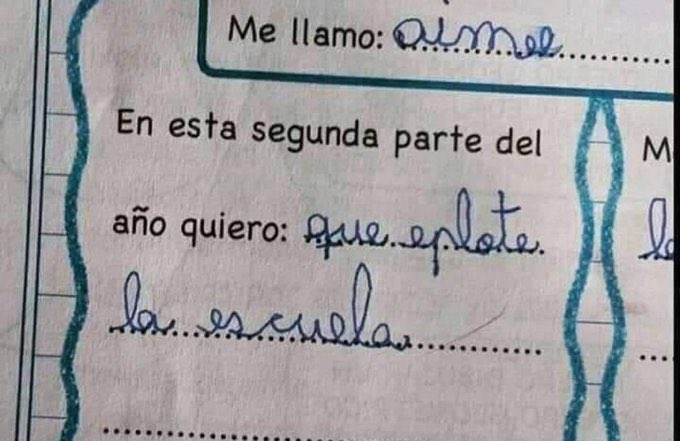 Me llamo: aimee
En esta segunda parte del
año quiero: que eplote
la escuela
M